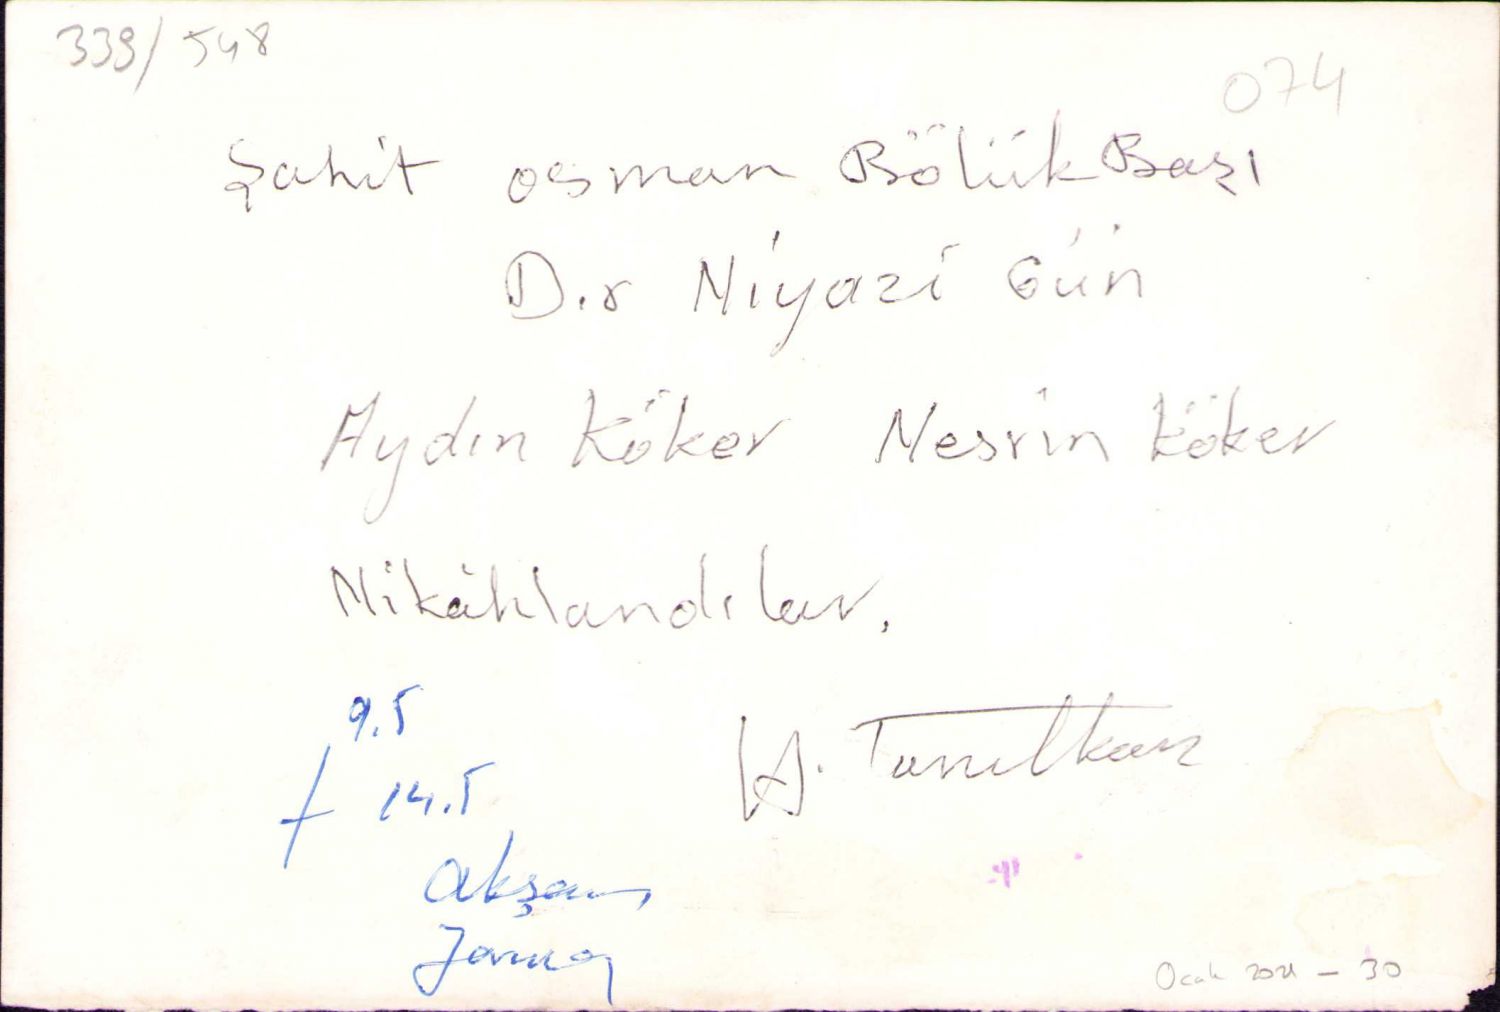 339/548
074
Şahit Osman BölükBaşı
D.r Niyazi Gün
Aydın Köker Nesrin Köker
Nikâhlandılar.
9.5
14.5
H. Tanıltkan
akşam
Ocak 2021 - 30